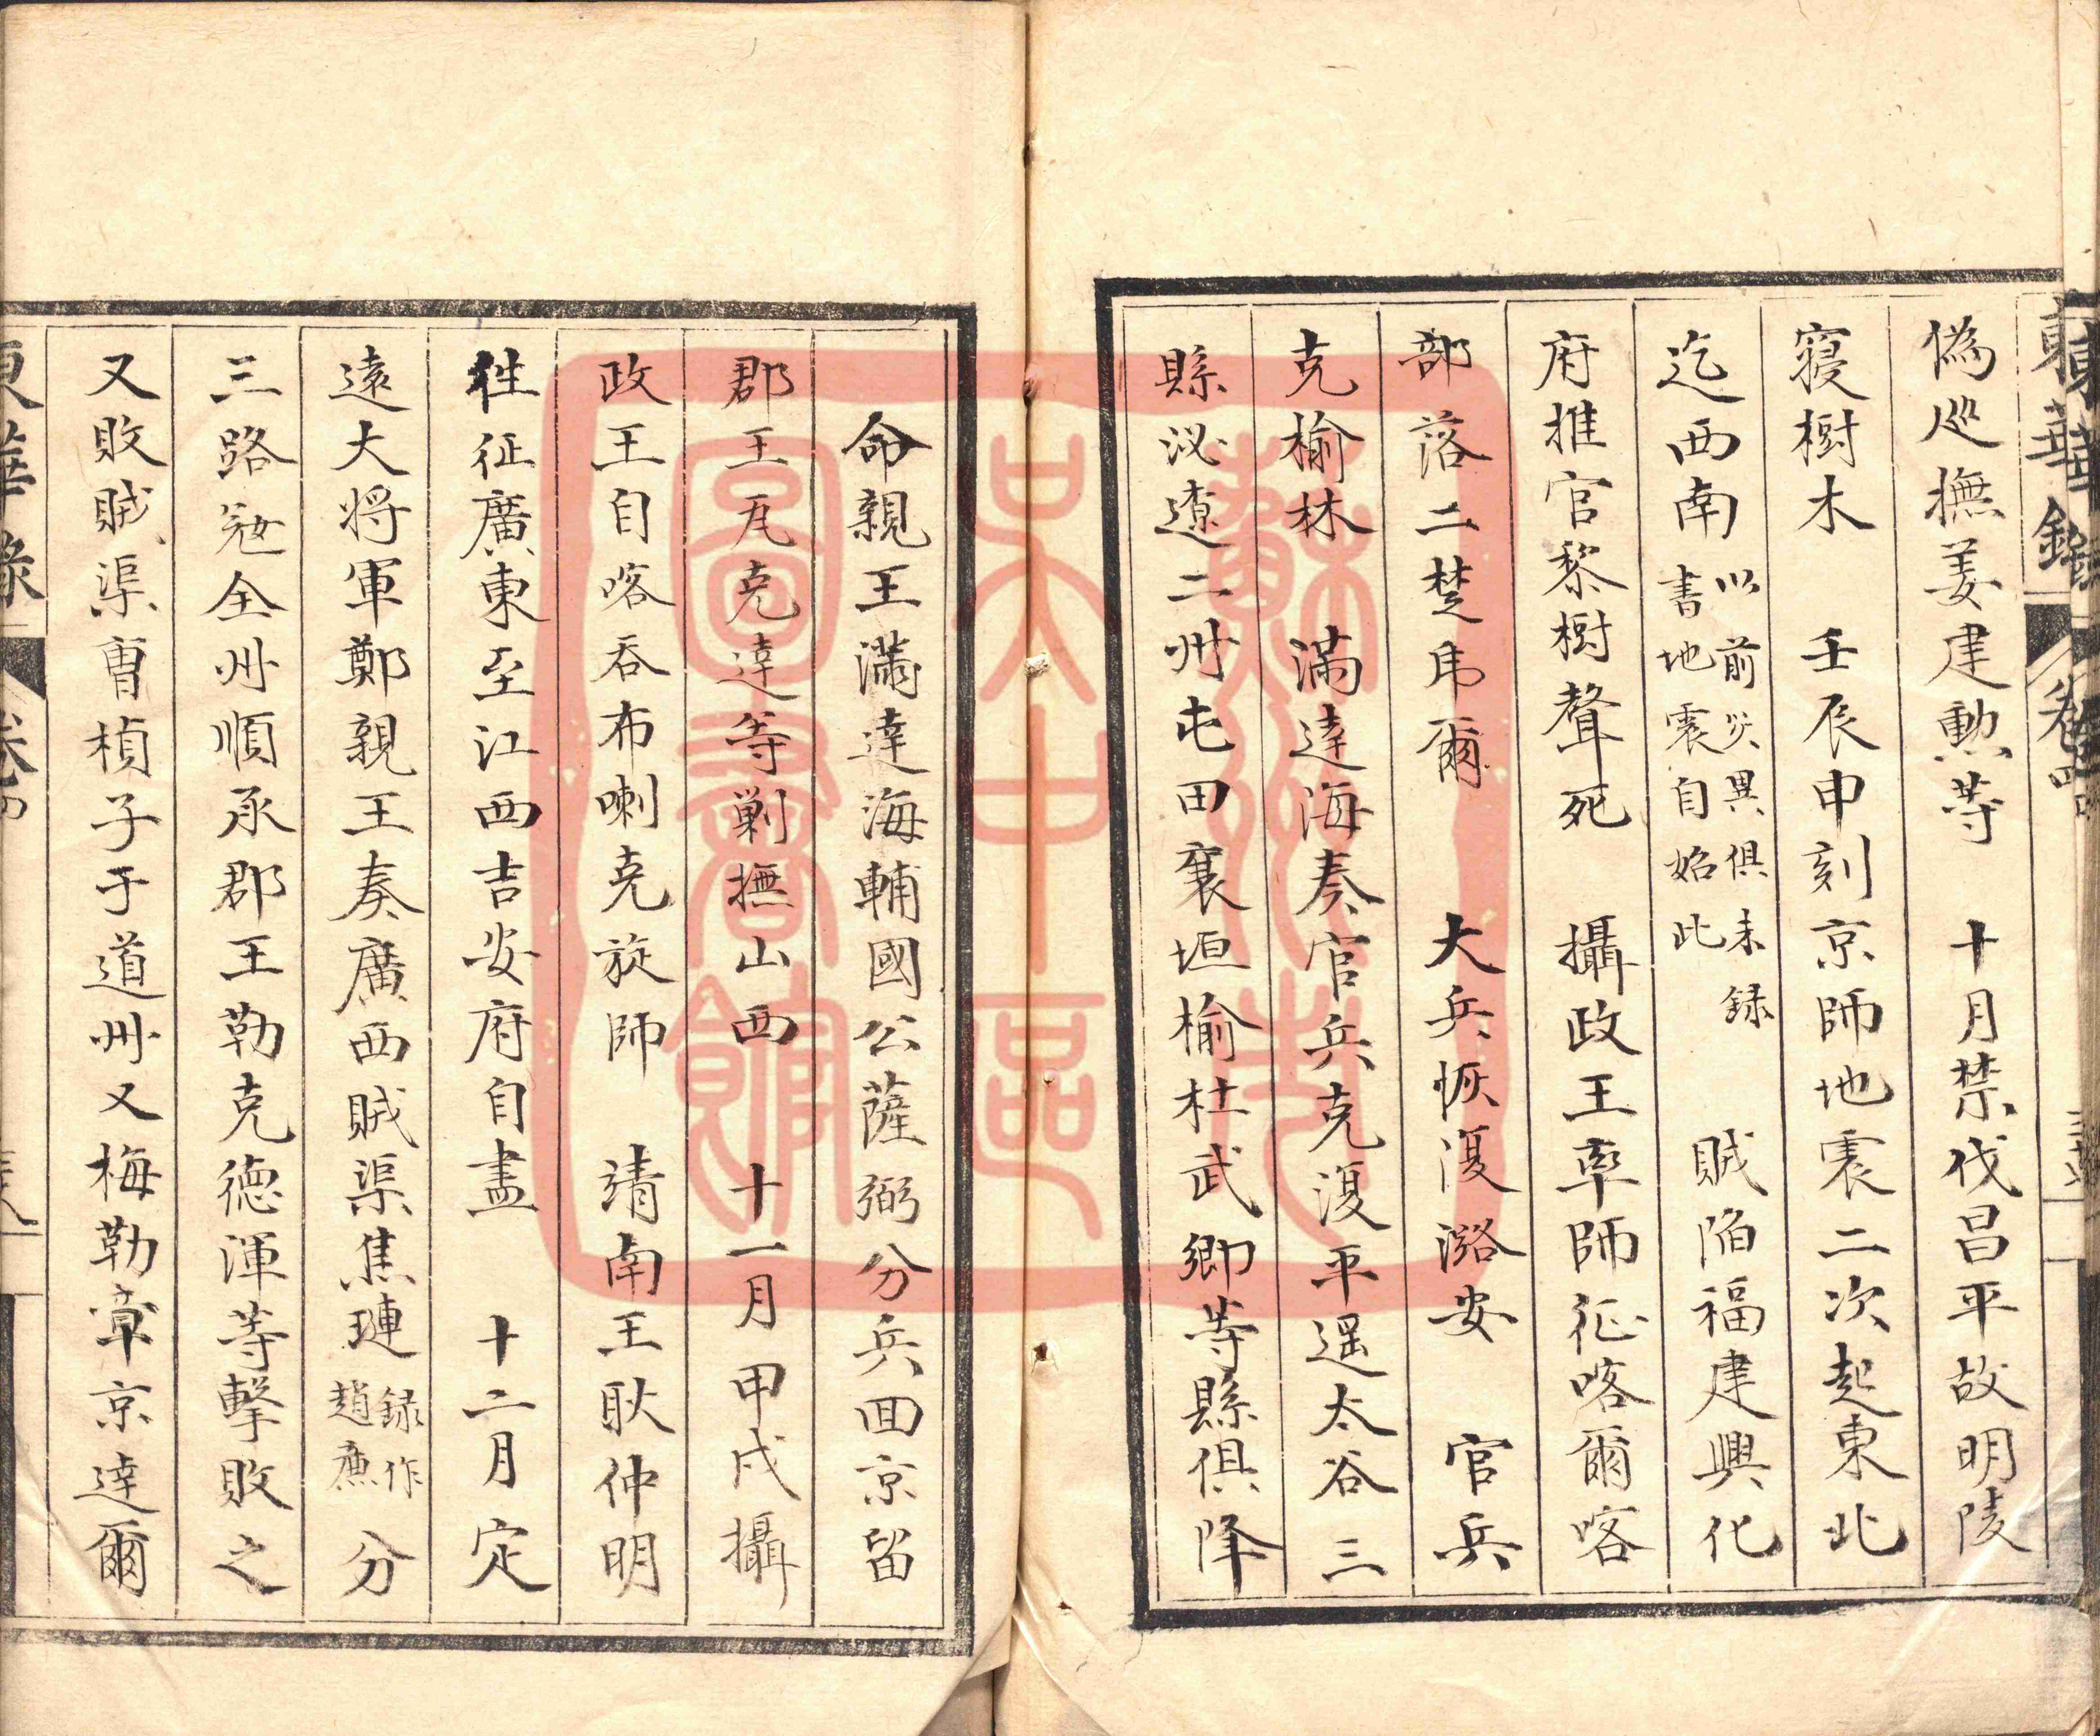 偽巡撫姜建勲等　十月禁伐昌平故明陵
寝樹木　壬辰申刻京師地震二次起東北
迄西南以前災異俱未録書地震自始此　賊陷福建興化
府推官黎樹聲死　攝政王率師征喀爾喀
部落二楚乕爾　大兵恢復潞安　官兵
克榆林　滿達海奏官兵克復平遥太谷三
縣泌遼二州屯田襄垣榆杜武鄉等縣俱降
命親王滿達海輔國公薩弼分兵回京留
郡王瓦克達等剿撫山西　十一月甲戌攝
政王自喀吞布喇克旋師　靖南王耿仲明
徃征廣東至江西吉安府自盡　十二月定
遠大将軍鄭親王奏廣西賊渠焦璉録作趙廉分
三路冦全州順承郡王勒克德渾等擊敗之
又敗賊渠曹楨子于道州又梅勒章京達爾
東華錄
卷四
蘇州市
吴中區
圖書館